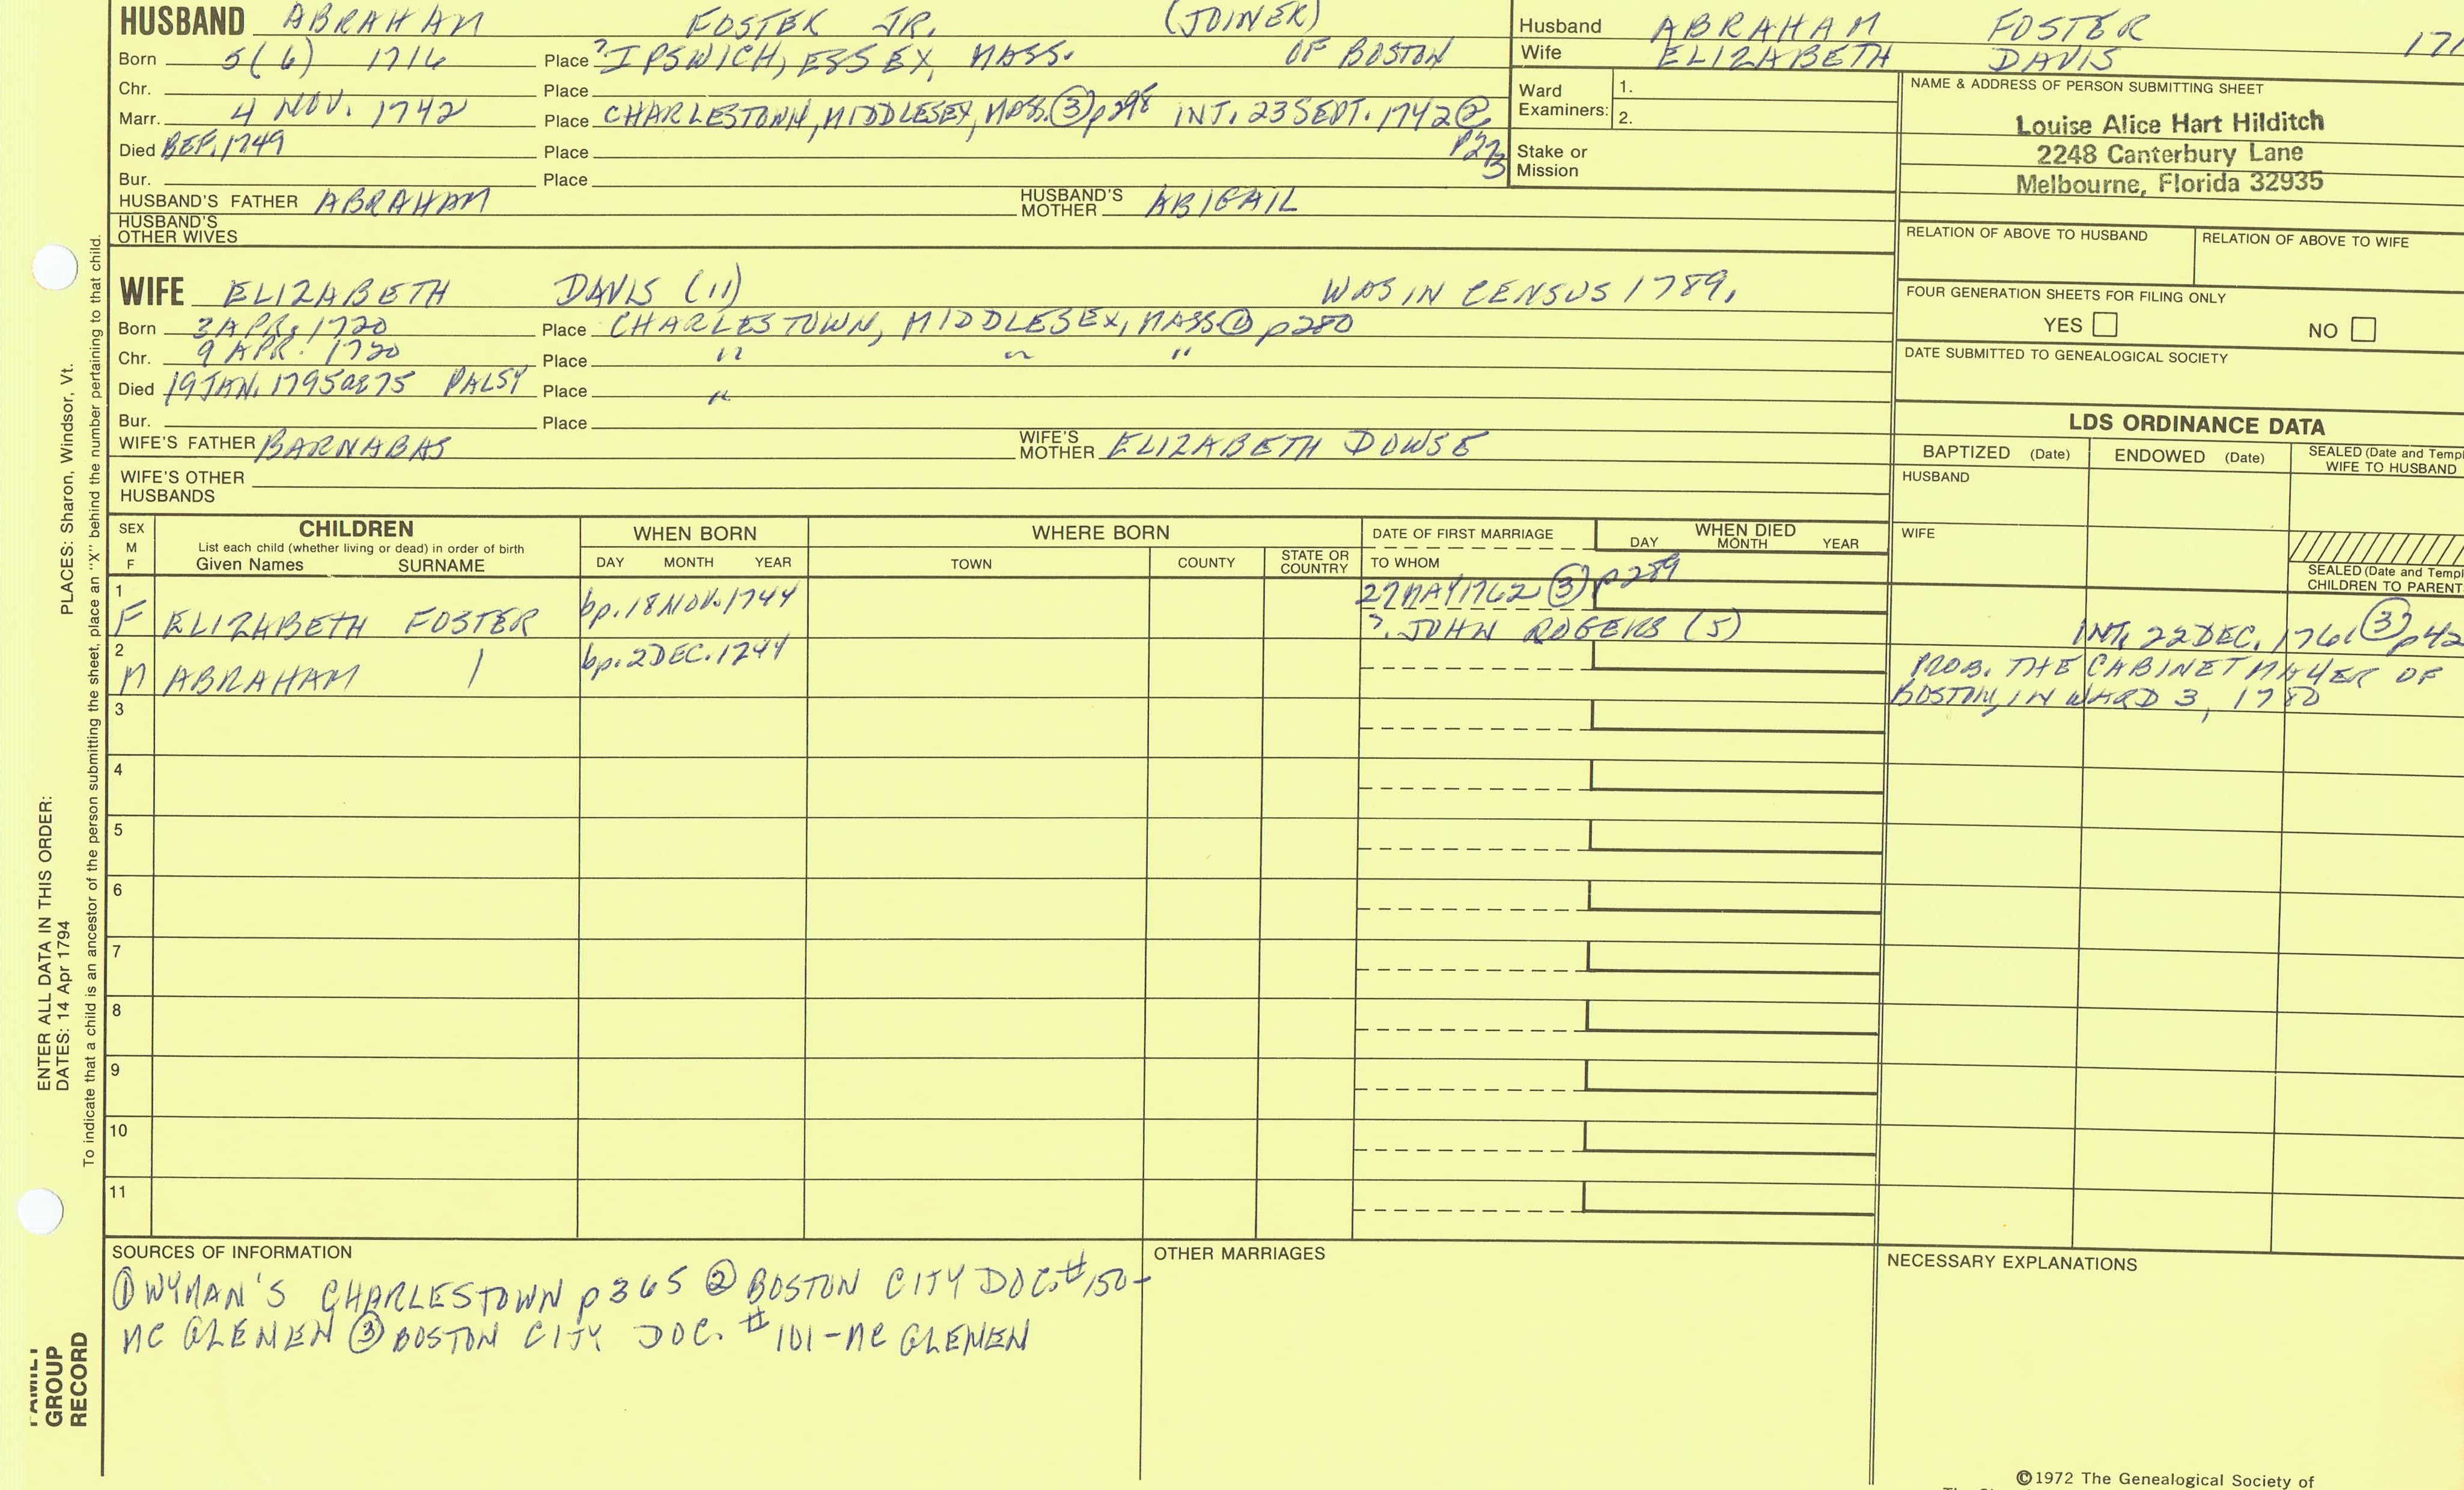 HUSBAND ABRAHAM FOSTER JR. (JOINER)
Born 5(6) 1716 Place ? IPSWICH, ESSEX, MASS. OF BOSTON
Chr. Place
Marr. 4 NOV. 1742 Place CHARLESTOWN, MIDDLESEX, MASS. ③ p298 INT. 23 SEPT. 1742 ②
p273
Died BEF. 1749 Place
Bur. Place
HUSBAND'S FATHER ABRAHAM HUSBAND'S MOTHER ABIGAIL
HUSBAND'S
OTHER WIVES
Husband ABRAHAM FOSTER
Wife ELIZABETH DAVIS
Ward
Examiners: 1.
2.
Stake or
Mission
NAME & ADDRESS OF PERSON SUBMITTING SHEET
Louise Alice Hart Hilditch
2248 Canterbury Lane
Melbourne, Florida 32935
RELATION OF ABOVE TO HUSBAND RELATION OF ABOVE TO WIFE
FOUR GENERATION SHEETS FOR FILING ONLY
YES NO
DATE SUBMITTED TO GENEALOGICAL SOCIETY
WIFE ELIZABETH DAVIS (11) WAS IN CENSUS 1789.
Born 3 APR. 1720 Place CHARLESTOWN, MIDDLESEX, MASS ① p280
Chr. 9 APR. 1720 Place " " "
Died 19 JAN. 1795 ae 75 PALSY Place "
Bur. Place
WIFE'S FATHER BARNABAS WIFE'S MOTHER ELIZABETH DOWSE
WIFE'S OTHER
HUSBANDS
LDS ORDINANCE DATA
BAPTIZED (Date) ENDOWED (Date) SEALED (Date and Templ
WIFE TO HUSBAND
HUSBAND
WIFE
SEALED (Date and Templ
CHILDREN TO PARENT
SEX
M
F
CHILDREN
List each child (whether living or dead) in order of birth
Given Names SURNAME
WHEN BORN
DAY MONTH YEAR
WHERE BORN
TOWN COUNTY STATE OR COUNTRY
DATE OF FIRST MARRIAGE
TO WHOM
WHEN DIED
DAY MONTH YEAR
1 bp. 18 NOV. 1744 27 MAY 1762 ③ p289
F ELIZABETH FOSTER ?. JOHN ROGERS (5) INT. 22 DEC. 1761 ③ p42
2 bp. 2 DEC. 1744 PROB. THE CABINET MAKER OF
M ABRAHAM | BOSTON, IN WARD 3, 1780
3
4
5
6
7
8
9
10
11
SOURCES OF INFORMATION
① WYMAN'S CHARLESTOWN p365 ② BOSTON CITY DOC. #150-
MC GLENEN ③ BOSTON CITY DOC. #101-MC GLENEN
OTHER MARRIAGES
NECESSARY EXPLANATIONS
©1972 The Genealogical Society of
PLACES: Sharon, Windsor, Vt.
ENTER ALL DATA IN THIS ORDER:
DATES: 14 Apr 1794
To indicate that a child is an ancestor of the person submitting the sheet, place an "X" behind the number pertaining to that child.
FAMILY
GROUP
RECORD